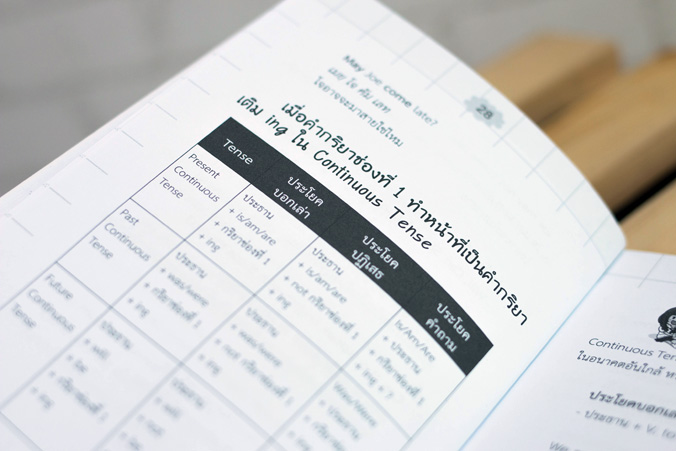 28
May Joe come late?
เมย์ โจ คัม เลท
โจอาจจะมาสายใช่ไหม
เมื่อคำกริยาช่องที่ 1 ทำหน้าที่เป็นคำกริยา
เติม ing ใน Continuous Tense
Tense
ประโยค
บอกเล่า
ประโยค
ปฏิเสธ
ประโยค
คำถาม
Present
Continuous
Tense
ประธาน
+ is/am/are
+ กริยาช่องที่ 1
+ ing
ประธาน
+ is/am/are
+ not กริยาช่องที่ 1
+ ing
Is/Am/Are
+ ประธาน
+ กริยาช่องที่ 1
+ ing + ?
Past
Continuous
Tense
ประธาน
+ was/were
+ กริยาช่องที่ 1
+ ing
ประธาน
+ was/were
+ not กริยาช่องที่ 1
+ ing
Was/Were
+ ประธาน
+ กริยาช่องที่ 1
Future
Continuous
Tense
ประธาน
+ will
+ be
+ กริยาช่องที่ 1
+ ing
ประธาน
+ will
Continuous
ในอนาคตอันใกล้
ประโยคบอกเล่า
- ประธาน + V. to